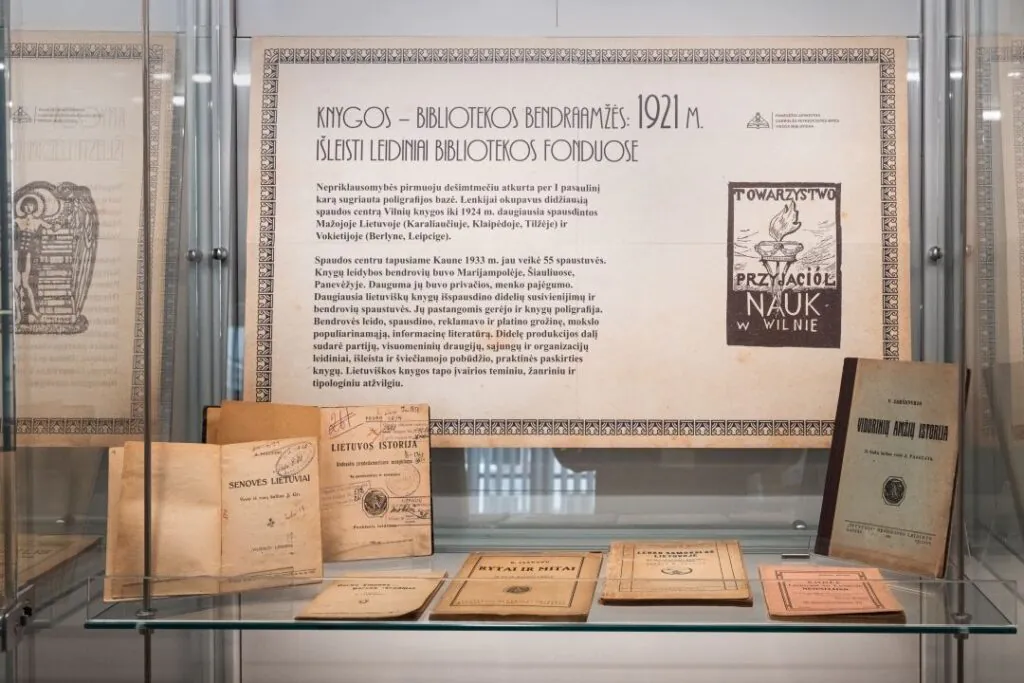 KNYGOS – BIBLIOTEKOS BENDRAAMŽĖS: 1921 M.
IŠLEISTI LEIDINIAI BIBLIOTEKOS FONDUOSE
Nepriklausomybės pirmuoju dešimtmečiu atkurta per I pasaulinį
karą sugriauta poligrafijos bazė. Lenkijai okupavus didžiausią
spaudos centrą Vilnių knygos iki 1924 m. daugiausia spausdintos
Mažojoje Lietuvoje (Karaliaučiuje, Klaipėdoje, Tilžėje) ir
Vokietijoje (Berlyne, Leipcige).
Spaudos centru tapusiame Kaune 1933 m. jau veikė 55 spaustuvės.
Knygų leidybos bendrovių buvo Marijampolėje, Šiauliuose,
Panevėžyje. Dauguma jų buvo privačios, menko pajėgumo.
Daugiausia lietuviškų knygų išspausdino didelių susivienijimų ir
bendrovių spaustuvės. Jų pastangomis gerėjo ir knygų poligrafija.
Bendrovės leido, spausdino, reklamavo ir platino grožinę, mokslo
populiarinamąją, informacinę literatūrą. Didelę produkcijos dalį
sudarė partijų, visuomeninių draugijų, sąjungų ir organizacijų
leidiniai, išleista ir šviečiamojo pobūdžio, praktinės paskirties
knygų. Lietuviškos knygos tapo įvairios teminiu, žanriniu ir
tipologiniu atžvilgiu.
TOWARZYSTWO
PRZYJACIÓŁ
NAUK
W WILNIE
SENOVĖS LIETUVIAI
LIETUVOS ISTORIJA
VIDURINIŲ AMŽIŲ ISTORIJA
RYTAI IR MITAI
LIETUVOJE